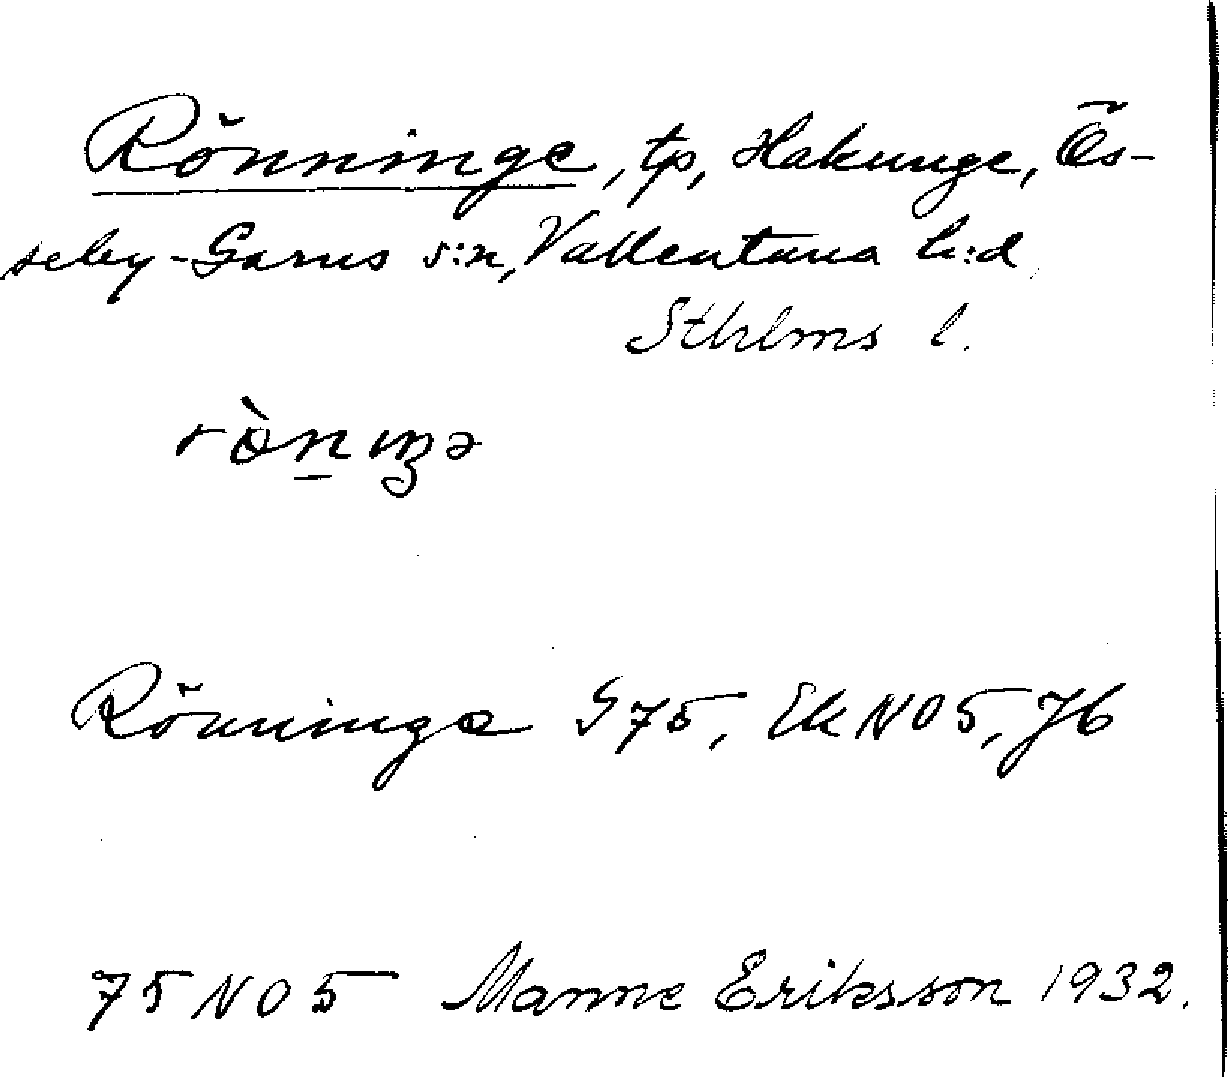 Rönninge, tp, Hakunge, Ös-
seby-Garns s:n, Vallentuna h:d
Sthlms l.
Rönninge G75, Ek NO5, Jb
75 NO 5 Manne Eriksson 1932.